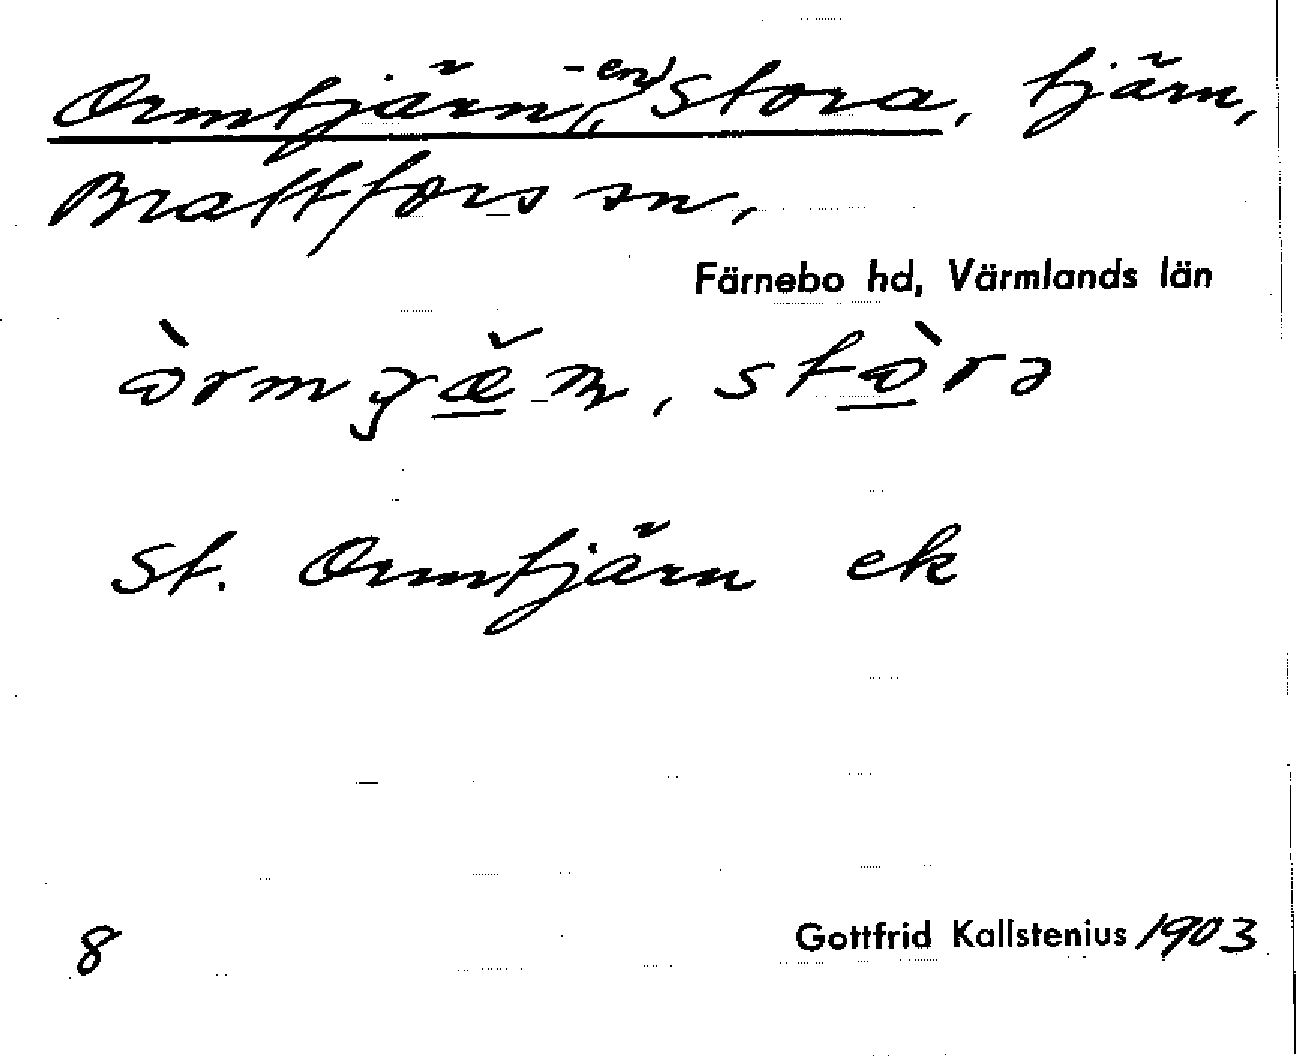 Ormtjärn(-en), Stora, tjärn,
Brattfors sn,
Färnebo hd, Värmlands län
St. Ormtjärn ek
8 Gottfrid Kallstenius 1903